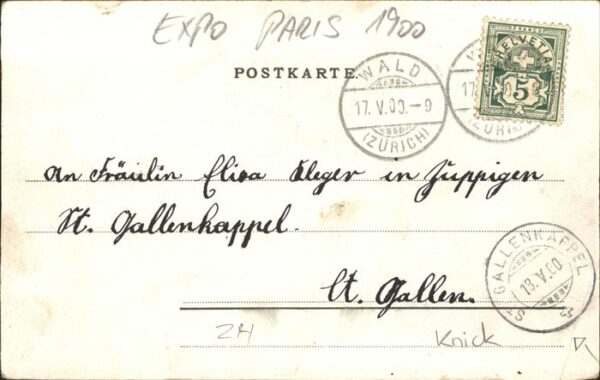 EXPO PARIS 1900
POSTKARTE.
WALD
17. V. 00. - 9
(ZÜRICH)
W
17.
(ZÜRICH)
FRANCO
HELVETIA
5
An Fräulin Elisa Kleger in Züppigen
St. Gallenkappel.
St. Gallen.
ST. GALLENKAPPEL
18. V. 00
ZH
Knick